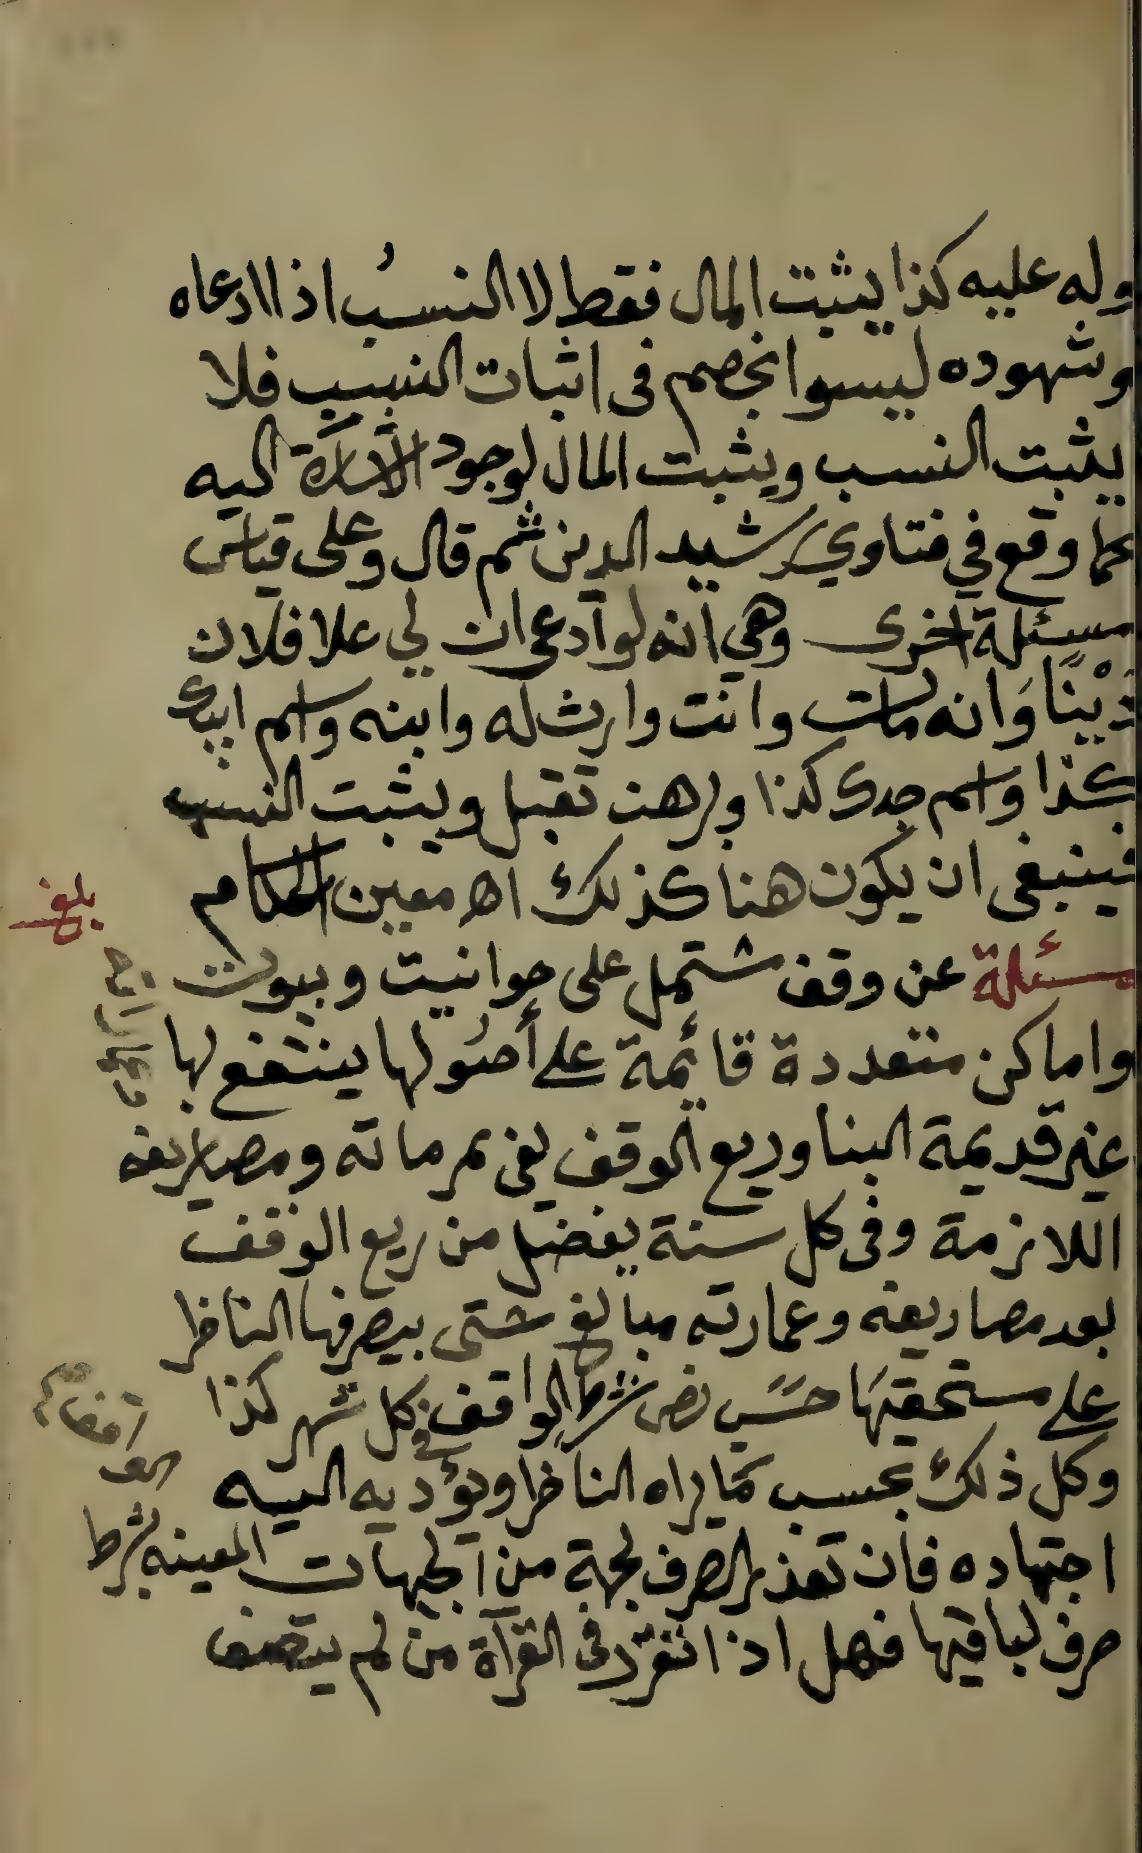 وله عليه كذا يثبت المال فقط لا النسبُ اذا ادعاه
وشهوده ليسوا بخصم فى اثبات النسب فلا
يثبت النسب ويثبت المال لوجود الاشارة اليه
كما وقع في فتاوي رشيد الدين ثم قال وعلى قياس
مسئلة اخرى وهي انه لو ادعى ان لي علا فلان
دَيْنًا وَانه مات وانت وارث له وابنه واسم ابيك
كذا واسم جدك كذا وبرهن تقبل ويثبت النسب
فينبغى ان يكون هنا كذلك اه معين الحكام
بلغ
مسئلة عن وقف مشتمل على حوانيت وبيوت
واماكن متعددة قائمة على أصُولها ينتفع بها
غير قديمة البنا وريع الوقف يفي بمرماته ومصاريفه
اللازمة وفى كل سنة يفضل من ريع الوقف
بعد مصاريفه وعمارته مبالغ شتى يصرفها الناظر
على مستحقيها حسَب نص شرط الواقف في كل شهر كذا
وكل ذلك بحسب ما يراه الناظر ويؤديه اليه
اجتهاده فان تعذر الصرف لجهة من الجهات المعينه بشرط
الواقف
صرف لباقيها فهل اذا انفرد فى القرآة من لم يتصف